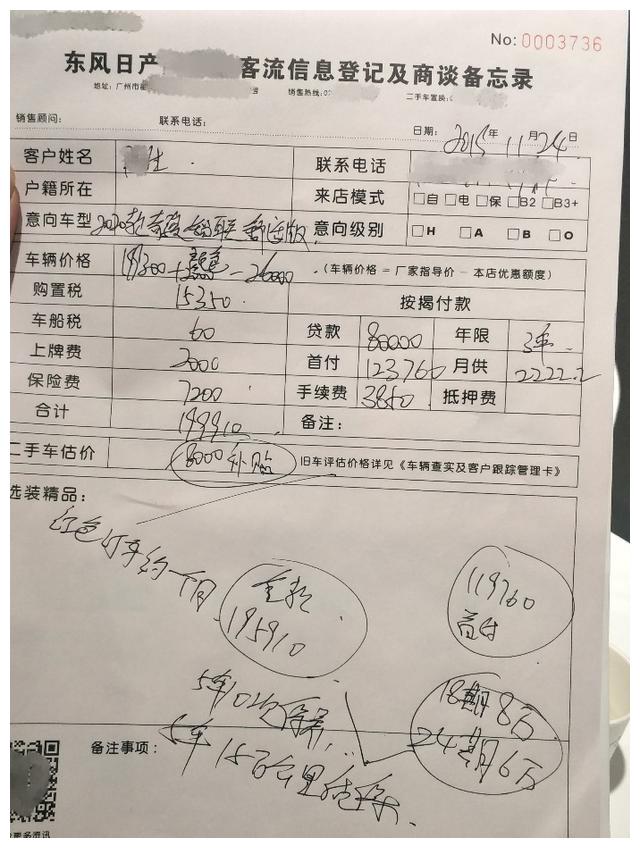 No: 0003736
东风日产 客流信息登记及商谈备忘录
地址:广州市 销售热线: 二手车置换:
销售顾问: 联系电话: 日期: 2015年 11月24日
客户姓名 生 联系电话
户籍所在 来店模式 □自 □电 □保 □B2 □B3+
意向车型 2020款 智联 版 意向级别 □H □A □B □O
车辆价格 -26000 (车辆价格 = 厂家指导价 - 本店优惠额度)
购置税 15350 按揭付款
车船税 60 贷款 80000 年限 3年
上牌费 2000 首付 123760 月供 2222.2
保险费 7200 手续费 3850 抵押费
合计 199910 备注:
二手车估价 8000补贴 旧车评估价格详见《车辆查实及客户跟踪管理卡》
选装精品:
红色订车约一个月
全款
195910
119760
首付
5年10次保养
18期8万
24期6万
备注事项:
5年15万公里
更多资讯